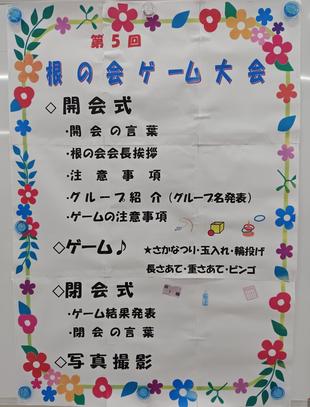 第5回
根の会ゲーム大会
◇開会式
・開会の言葉
・根の会会長挨拶
・注意事項
・グループ紹介（グループ名発表）
・ゲームの注意事項
◇ゲーム♪ ★さかなつり・玉入れ・輪投げ
長さあて・重さあて・ビンゴ
◇閉会式
・ゲーム結果発表
・閉会の言葉
◇写真撮影